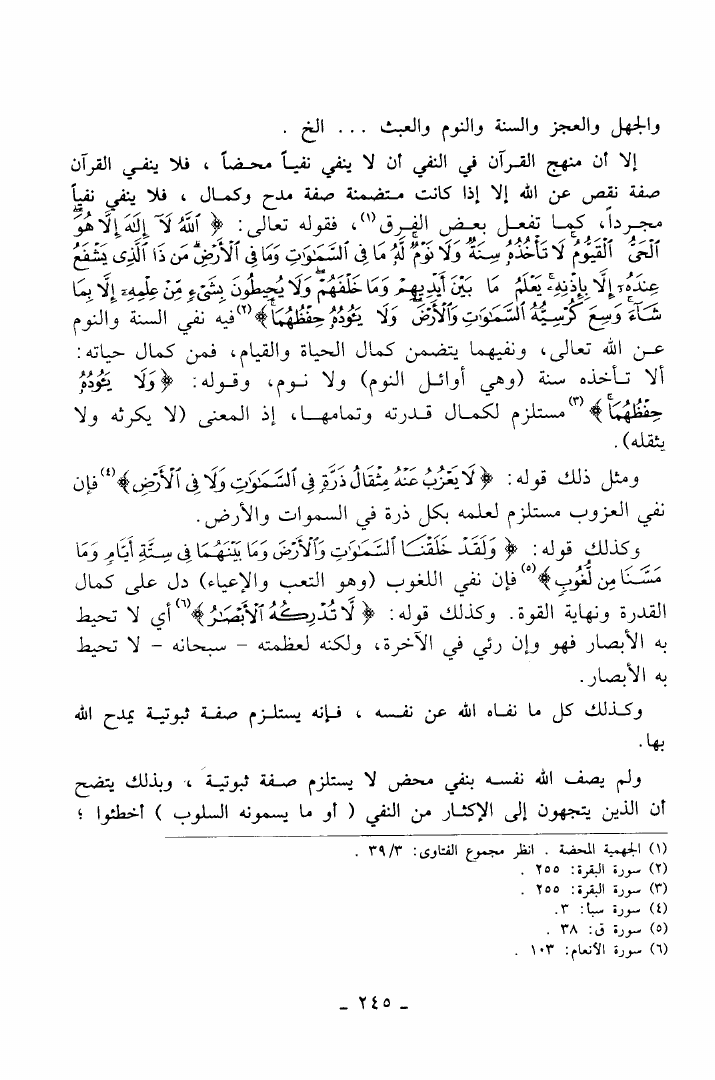 والجهل والعجز والسنة والنوم والعبث ... الخ .
إلا أن منهج القرآن في النفي أن لا ينفي نفياً محضاً ، فلا ينفي القرآن
صفة نقص عن الله إلا إذا كانت متضمنة صفة مدح وكمال ، فلا ينفي نفياً
مجرداً، كما تفعل بعض الفرق(١)، فقوله تعالى: ﴿ ٱللَّهُ لَآ إِلَٰهَ إِلَّا هُوَ
ٱلْحَىُّ ٱلْقَيُّومُ لَا تَأْخُذُهُۥ سِنَةٌ وَلَا نَوْمٌ لَّهُۥ مَا فِى ٱلسَّمَٰوَٰتِ وَمَا فِى ٱلْأَرْضِ مَن ذَا ٱلَّذِى يَشْفَعُ
عِندَهُۥٓ إِلَّا بِإِذْنِهِۦ يَعْلَمُ مَا بَيْنَ أَيْدِيهِمْ وَمَا خَلْفَهُمْ وَلَا يُحِيطُونَ بِشَىْءٍ مِّنْ عِلْمِهِۦٓ إِلَّا بِمَا
شَآءَ وَسِعَ كُرْسِيُّهُ ٱلسَّمَٰوَٰتِ وَٱلْأَرْضَ وَلَا يَـُٔودُهُۥ حِفْظُهُمَا﴾(٢) فيه نفي السنة والنوم
عن الله تعالى، ونفيهما يتضمن كمال الحياة والقيام، فمن كمال حياته:
ألا تأخذه سنة (وهي أوائل النوم) ولا نوم، وقوله: ﴿وَلَا يَـُٔودُهُۥ
حِفْظُهُمَا﴾(٣) مستلزم لكمال قدرته وتمامها، إذ المعنى (لا يكرثه ولا
يثقله).
ومثل ذلك قوله: ﴿لَا يَعْزُبُ عَنْهُ مِثْقَالُ ذَرَّةٍ فِى ٱلسَّمَٰوَٰتِ وَلَا فِى ٱلْأَرْضِ﴾(٤) فإن
نفي العزوب مستلزم لعلمه بكل ذرة في السموات والأرض.
وكذلك قوله: ﴿ وَلَقَدْ خَلَقْنَا ٱلسَّمَٰوَٰتِ وَٱلْأَرْضَ وَمَا بَيْنَهُمَا فِى سِتَّةِ أَيَّامٍ وَمَا
مَسَّنَا مِن لُّغُوبٍ﴾(٥) فإن نفي اللغوب (وهو التعب والإعياء) دل على كمال
القدرة ونهاية القوة. وكذلك قوله: ﴿ لَّا تُدْرِكُهُ ٱلْأَبْصَٰرُ﴾(٦) أي لا تحيط
به الأبصار فهو وإن رئي في الآخرة، ولكنه لعظمته - سبحانه - لا تحيط
به الأبصار.
وكذلك كل ما نفاه الله عن نفسه ، فإنه يستلزم صفة ثبوتية يمدح الله
بها.
ولم يصف الله نفسه بنفي محض لا يستلزم صفة ثبوتية ، وبذلك يتضح
أن الذين يتجهون إلى الإكثار من النفي ( أو ما يسمونه السلوب ) أخطئوا ؛
(١) الجهمية المحضة . انظر مجموع الفتاوى: ٣٩/٣ .
(٢) سورة البقرة: ٢٥٥ .
(٣) سورة البقرة: ٢٥٥ .
(٤) سورة سبأ: ٣.
(٥) سورة ق: ٣٨ .
(٦) سورة الأنعام: ١٠٣ .
ـ ٢٤٥ ـ